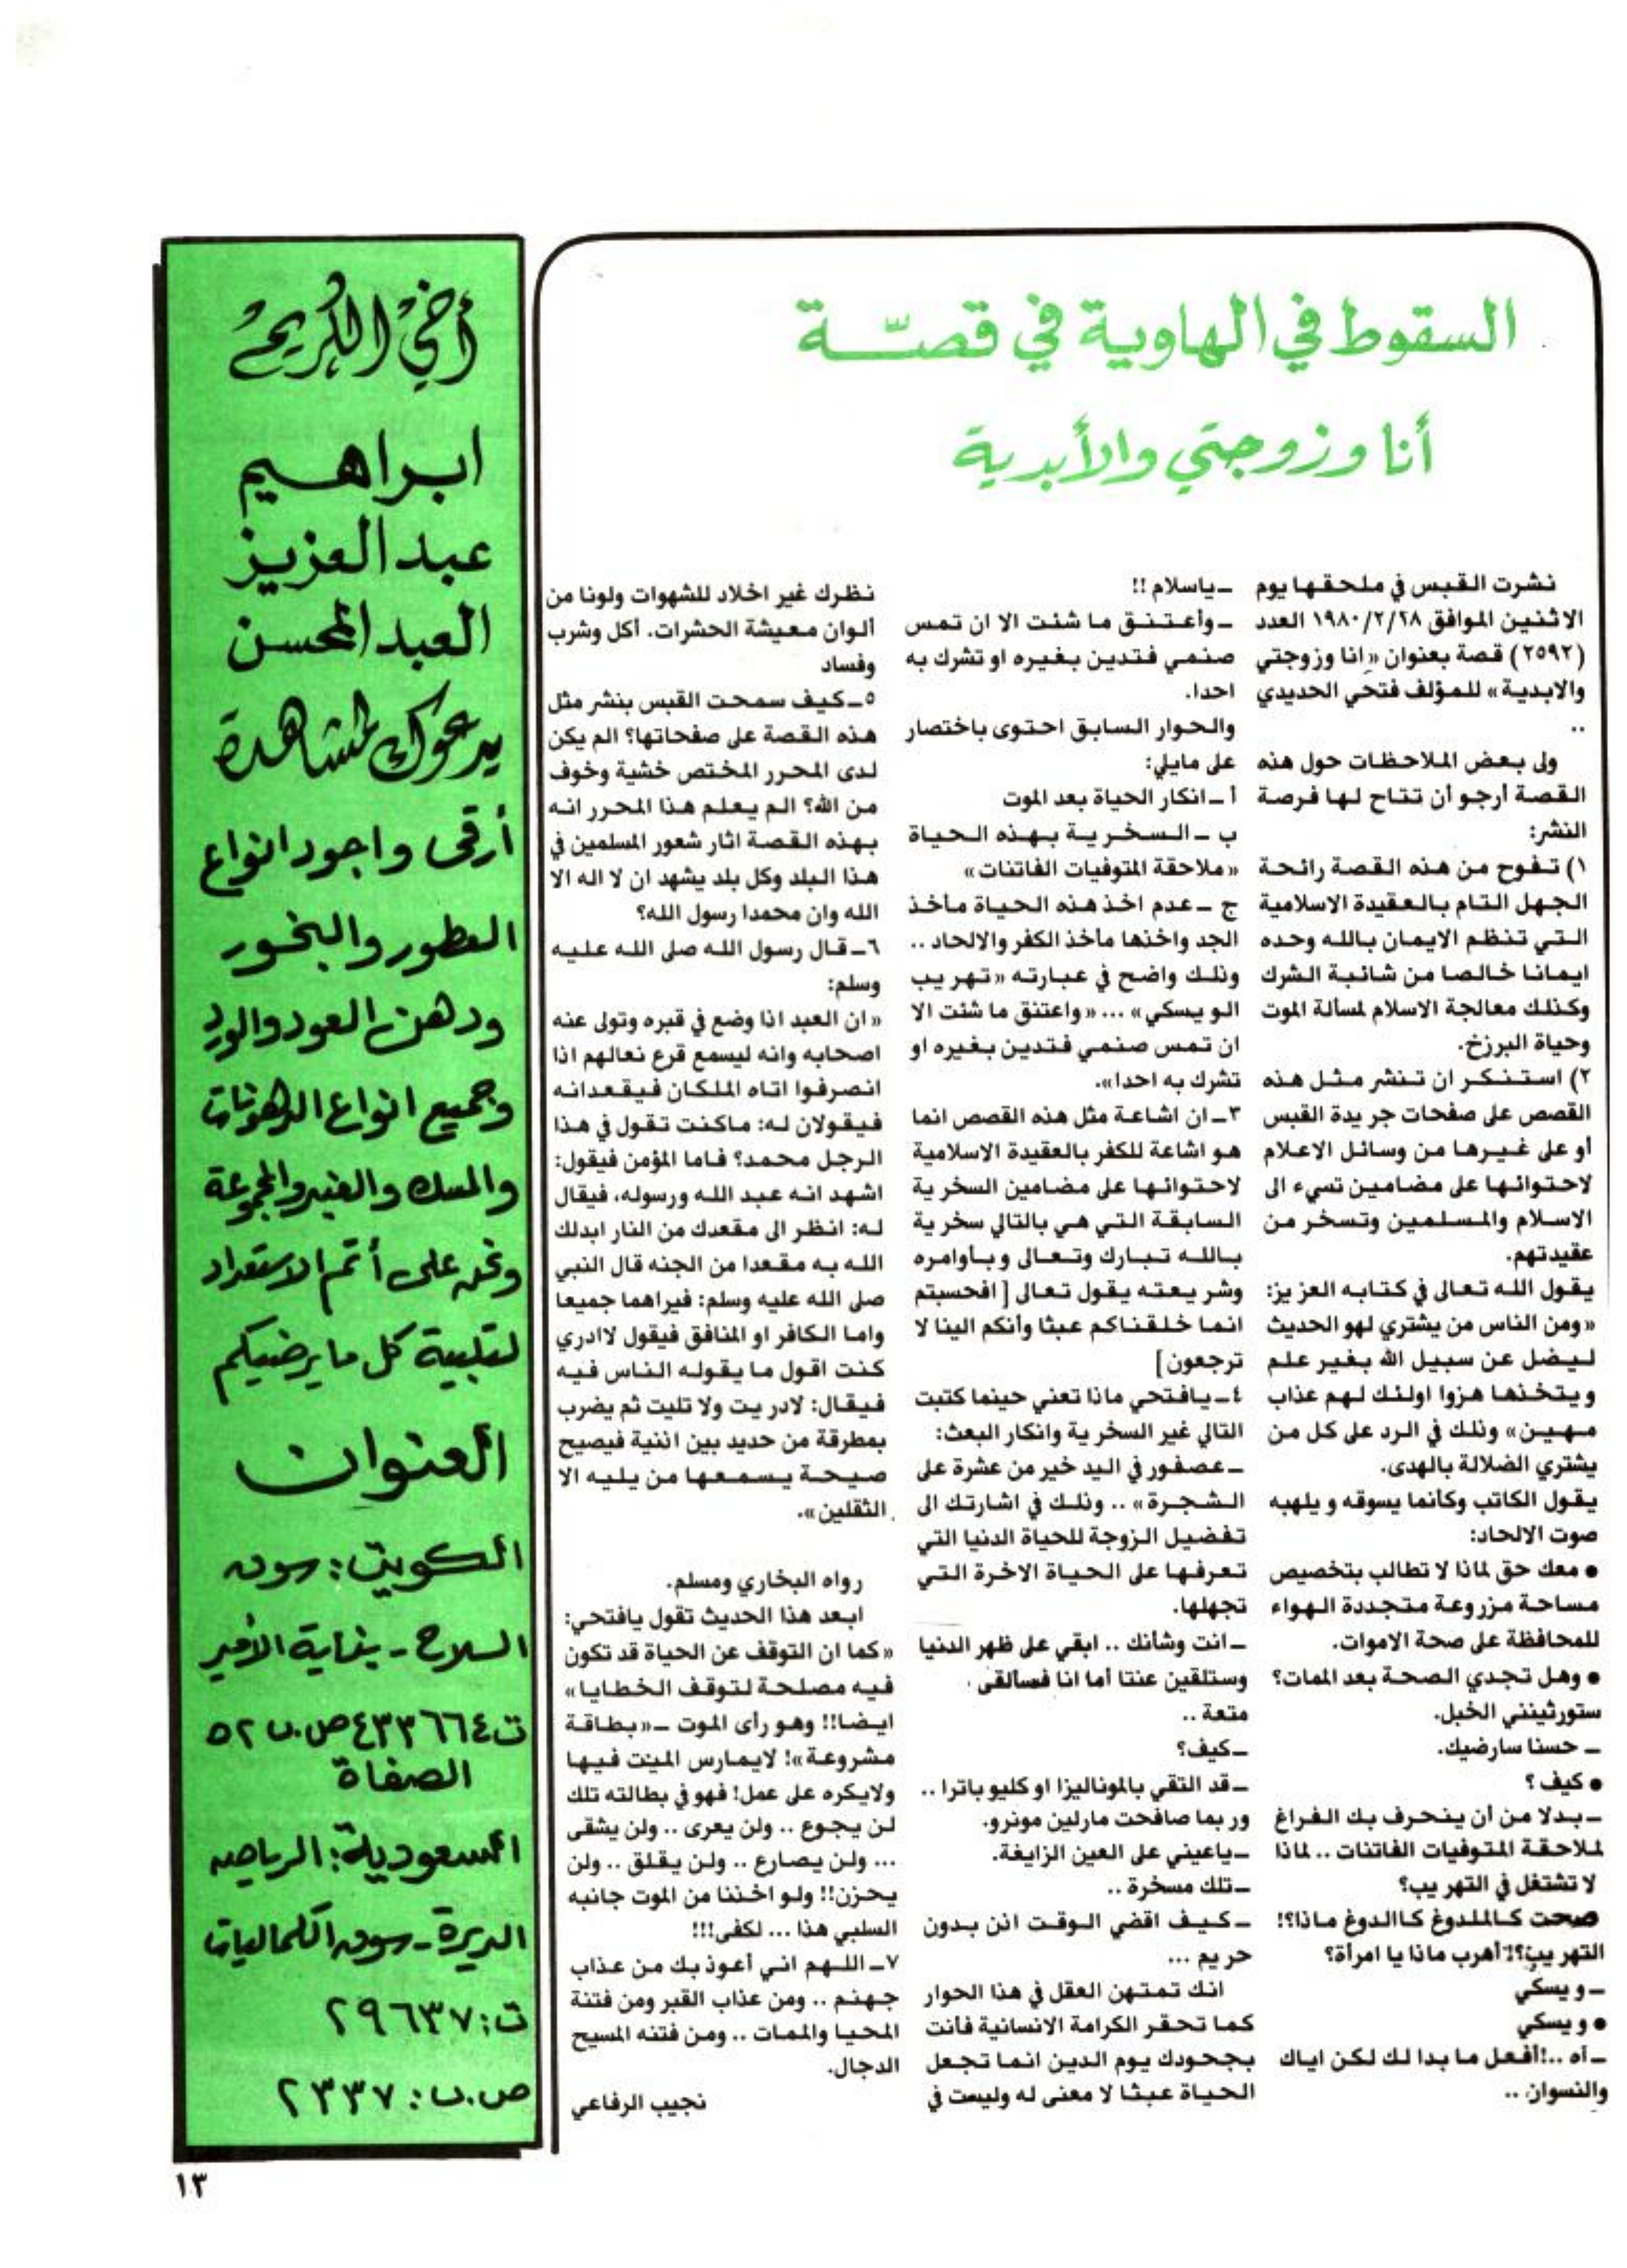 السقوط في الهاوية في قصّة
أنا وزوجتي والأبدية
نشرت القبس في ملحقها يوم
الاثنين الموافق ١٩٨٠/٢/٢٨ العدد
(٢٥٩٢) قصة بعنوان «انا وزوجتي
والابدية» للمؤلف فتحي الحديدي
..
ولى بعض الملاحظات حول هذه
القصة أرجو أن تتاح لها فرصة
النشر:
١) تفوح من هذه القصة رائحة
الجهل التام بالعقيدة الاسلامية
التي تنظم الايمان بالله وحده
ايمانا خالصا من شائبة الشرك
وكذلك معالجة الاسلام لمسألة الموت
وحياة البرزخ.
٢) استنكر ان تنشر مثل هذه
القصص على صفحات جريدة القبس
أو على غيرها من وسائل الاعلام
لاحتوائها على مضامين تسيء الى
الاسلام والمسلمين وتسخر من
عقيدتهم.
يقول الله تعالى في كتابه العزيز:
«ومن الناس من يشتري لهو الحديث
ليضل عن سبيل الله بغير علم
ويتخذها هزوا اولئك لهم عذاب
مهين» وذلك في الرد على كل من
يشتري الضلالة بالهدى.
يقول الكاتب وكأنما يسوقه ويلهبه
صوت الالحاد:
● معك حق لماذا لا تطالب بتخصيص
مساحة مزروعة متجددة الهواء
للمحافظة على صحة الاموات.
● وهل تجدي الصحة بعد الممات؟
ستورثينني الخبل.
ـ حسنا سارضيك.
● كيف ؟
ـ بدلا من أن ينحرف بك الفراغ
لملاحقة المتوفيات الفاتنات .. لماذا
لا تشتغل في التهريب؟
صحت كالملدوغ كاالدوغ ماذا؟!
التهريب؟! أهرب ماذا يا امرأة؟
ـ ويسكي
● ويسكي
ـ آه ..! أفعل ما بدا لك لكن اياك
والنسوان ..
ـ ياسلام !!
ـ وأعتنق ما شئت الا ان تمس
صنمي فتدين بغيره او تشرك به
احدا.
والحوار السابق احتوى باختصار
على مايلي:
أ ـ انكار الحياة بعد الموت
ب ـ السخرية بهذه الحياة
«ملاحقة المتوفيات الفاتنات»
ج ـ عدم اخذ هذه الحياة مأخذ
الجد واخذها مأخذ الكفر والالحاد ..
وذلك واضح في عبارته «تهريب
الويسكي» ... «واعتنق ما شئت الا
ان تمس صنمي فتدين بغيره او
تشرك به احدا».
٣ـ ان اشاعة مثل هذه القصص انما
هو اشاعة للكفر بالعقيدة الاسلامية
لاحتوائها على مضامين السخرية
السابقة التي هي بالتالي سخرية
بالله تبارك وتعالى وبأوامره
وشريعته يقول تعالى [افحسبتم
انما خلقناكم عبثا وأنكم الينا لا
ترجعون]
٤ـ يافتحي ماذا تعني حينما كتبت
التالي غير السخرية وانكار البعث:
ـ عصفور في اليد خير من عشرة على
الشجرة» .. وذلك في اشارتك الى
تفضيل الزوجة للحياة الدنيا التي
تعرفها على الحياة الاخرة التي
تجهلها.
ـ انت وشأنك .. ابقي على ظهر الدنيا
وستلقين عنتا أما انا فسألقى
متعة ..
ـ كيف؟
ـ قد التقي بالموناليزا او كليوباترا ..
وربما صافحت مارلين مونرو.
ـ ياعيني على العين الزايغة.
ـ تلك مسخرة ..
ـ كيف اقضي الوقت اذن بدون
حريم ...
انك تمتهن العقل في هذا الحوار
كما تحقر الكرامة الانسانية فأنت
بجحودك يوم الدين انما تجعل
الحياة عبثا لا معنى له وليست في
نظرك غير اخلاد للشهوات ولونا من
ألوان معيشة الحشرات. أكل وشرب
وفساد
٥ـ كيف سمحت القبس بنشر مثل
هذه القصة على صفحاتها؟ الم يكن
لدى المحرر المختص خشية وخوف
من الله؟ الم يعلم هذا المحرر انه
بهذه القصة اثار شعور المسلمين في
هذا البلد وكل بلد يشهد ان لا اله الا
الله وان محمدا رسول الله؟
٦ـ قال رسول الله صلى الله عليه
وسلم:
«ان العبد اذا وضع في قبره وتولى عنه
اصحابه وانه ليسمع قرع نعالهم اذا
انصرفوا اتاه الملكان فيقعدانه
فيقولان له: ماكنت تقول في هذا
الرجل محمد؟ فاما المؤمن فيقول:
اشهد انه عبد الله ورسوله، فيقال
له: انظر الى مقعدك من النار ابدلك
الله به مقعدا من الجنه قال النبي
صلى الله عليه وسلم: فيراهما جميعا
واما الكافر او المنافق فيقول لاادري
كنت اقول ما يقوله الناس فيه
فيقال: لادريت ولا تليت ثم يضرب
بمطرقة من حديد بين اذنية فيصيح
صيحة يسمعها من يليه الا
الثقلين».
رواه البخاري ومسلم.
ابعد هذا الحديث تقول يافتحي:
«كما ان التوقف عن الحياة قد تكون
فيه مصلحة لتوقف الخطايا»
ايضا!! وهو رأى الموت ـ «بطاقة
مشروعة»! لايمارس الميت فيها
ولايكره على عمل! فهو في بطالته تلك
لن يجوع .. ولن يعرى .. ولن يشقى
... ولن يصارع .. ولن يقلق .. ولن
يحزن!! ولو اخذنا من الموت جانبه
السلبي هذا ... لكفى!!!
٧ـ اللهم اني أعوذ بك من عذاب
جهنم .. ومن عذاب القبر ومن فتنة
المحيا والممات .. ومن فتنه المسيح
الدجال.
نجيب الرفاعي
أخي الكريم
ابراهيم
عبدالعزيز
العبدالمحسن
يدعوك لمشاهدة
أرقى واجود انواع
العطور والبخور
ودهن العود والورد
وجميع انواع الدهونات
والمسك والعنبر والمجموعة
ونحن على أتم الاستعداد
لتلبية كل ما يرضيكم
العنوان
الكويت: سوق
السلاح - بناية الأمير
ت ٤٣٣٦٦٤ ص.ب ٥٢
الصفاة
السعودية: الرياض
الديرة - سوق الكماليات
ت: ٢٩٦٣٧
ص.ب: ٢٣٣٧
١٣